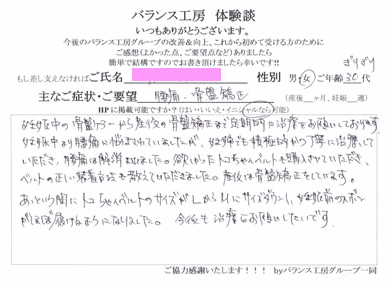 バランス工房 体験談
いつもありがとうございます。
今後のバランス工房グループの改善&向上、これから初めて受ける方のために
ご感想(よかった点、ご要望点など)ありましたら
簡単で結構ですのでお書き頂けましたら幸いです!!
ぎりぎり
もし差し支えなければご氏名 性別 男・女 ご年齢 30代
主なご症状・ご要望 腰痛・骨盤矯正 (産後 ヶ月、妊娠 週)
HPに掲載可能ですか?(はい・いいえ・イニシャルなら可能)
妊娠中の骨盤ケアーから産後の骨盤矯正まで定期的に治療をお願いしております。
妊娠中より腰痛に悩まされていましたが、妊婦でも積極的かつ丁寧に治療して
いただき、腰痛は解消しました。欲しかったトコちゃんベルトも購入させていただき、
ベルトの正しい装着方法も教えていただきました。産後は骨盤矯正をしています。
あっという間にトコちゃんベルトのサイズがLからMにサイズダウンし、妊娠前のズボン
がはける様になりました。今後も治療をお願いしたいです。
ご協力感謝いたします!!! byバランス工房グループ一同